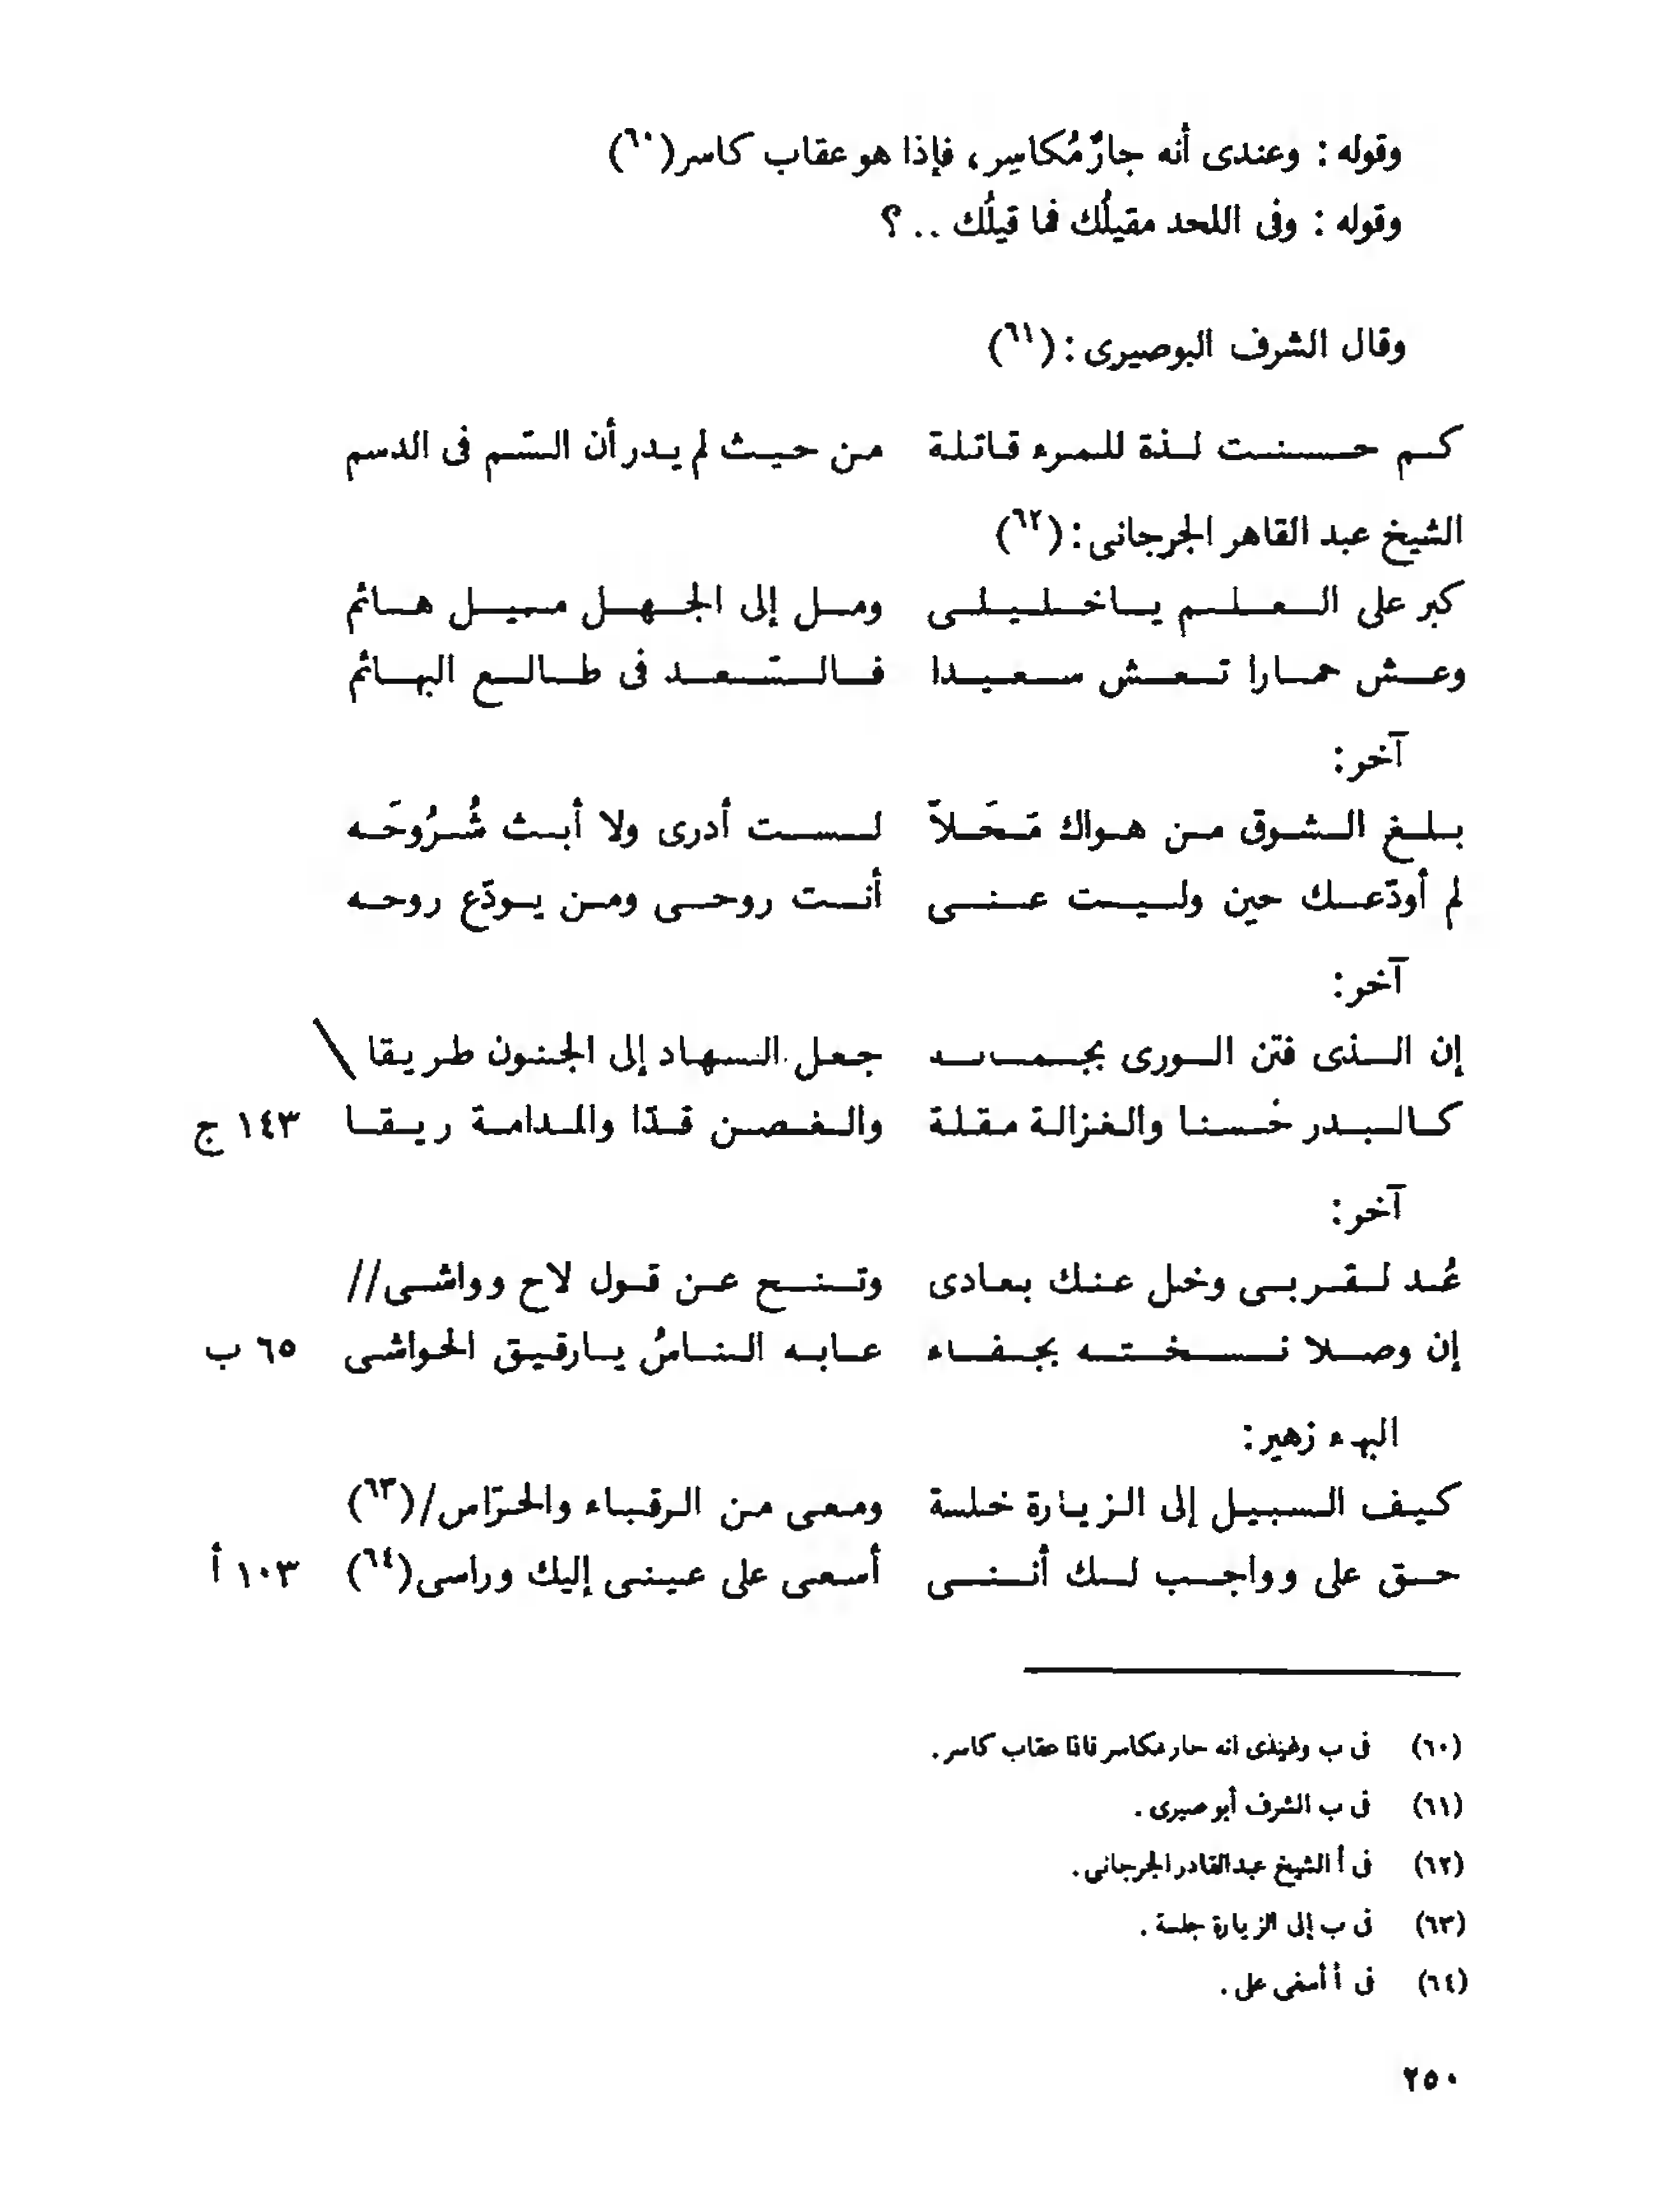 وقوله : وعندى أنه جارٌ مُكاسِر ، فإذا هو عقاب كاسر(٦٠)
وقوله : وفى اللحد مقيلُك فما قيلُك .. ؟
وقال الشرف البوصيرى : (٦١)
كم حسنت لذة للمرء قاتلة من حيث لم يدر أن السّم فى الدسم
الشيخ عبد القاهر الجرجانى : (٦٢)
كبر على العلم ياخليلى ومل إلى الجهل ميل هائم
وعش حمارا تعش سعيدا فالسّعد فى طالع البهائم
آخر :
بلغ الشوق من هواك مَحَلاّ لست أدرى ولا أبث شُرُوحَه
لم أودّعك حين وليت عنى أنت روحى ومن يودّع روحه
آخر :
إن الذى فتن الورى جعل السهاد إلى الجنون طريقا \
كالبدر حُسنا والغزالة مقلة والغصن قدّا والمدامة ريقا ١٤٣ ج
آخر :
عُد لقربى وخل عنك بعادى وتنح عن قول لاح وواشى //
إن وصلا نسخته بجفاء عابه الناسُ يارقيق الحواشى ٦٥ ب
البهاء زهير :
كيف السبيل إلى الزيارة خلسة ومعى من الرقباء والحرّاس /(٦٣)
حق على وواجب لك أننى أسعى على عينى إليك وراسى(٦٤) ١٠٣ أ
(٦٠) فى ب انه حار مكاسر عقاب كاسر .
(٦١) فى ب الشرف أبو صيرى .
(٦٢) فى أ الشيخ عبدالقادر الجرجانى .
(٦٣) فى ب إلى الزيارة جلسة .
(٦٤) فى أ أسفى على .
٢٥٠